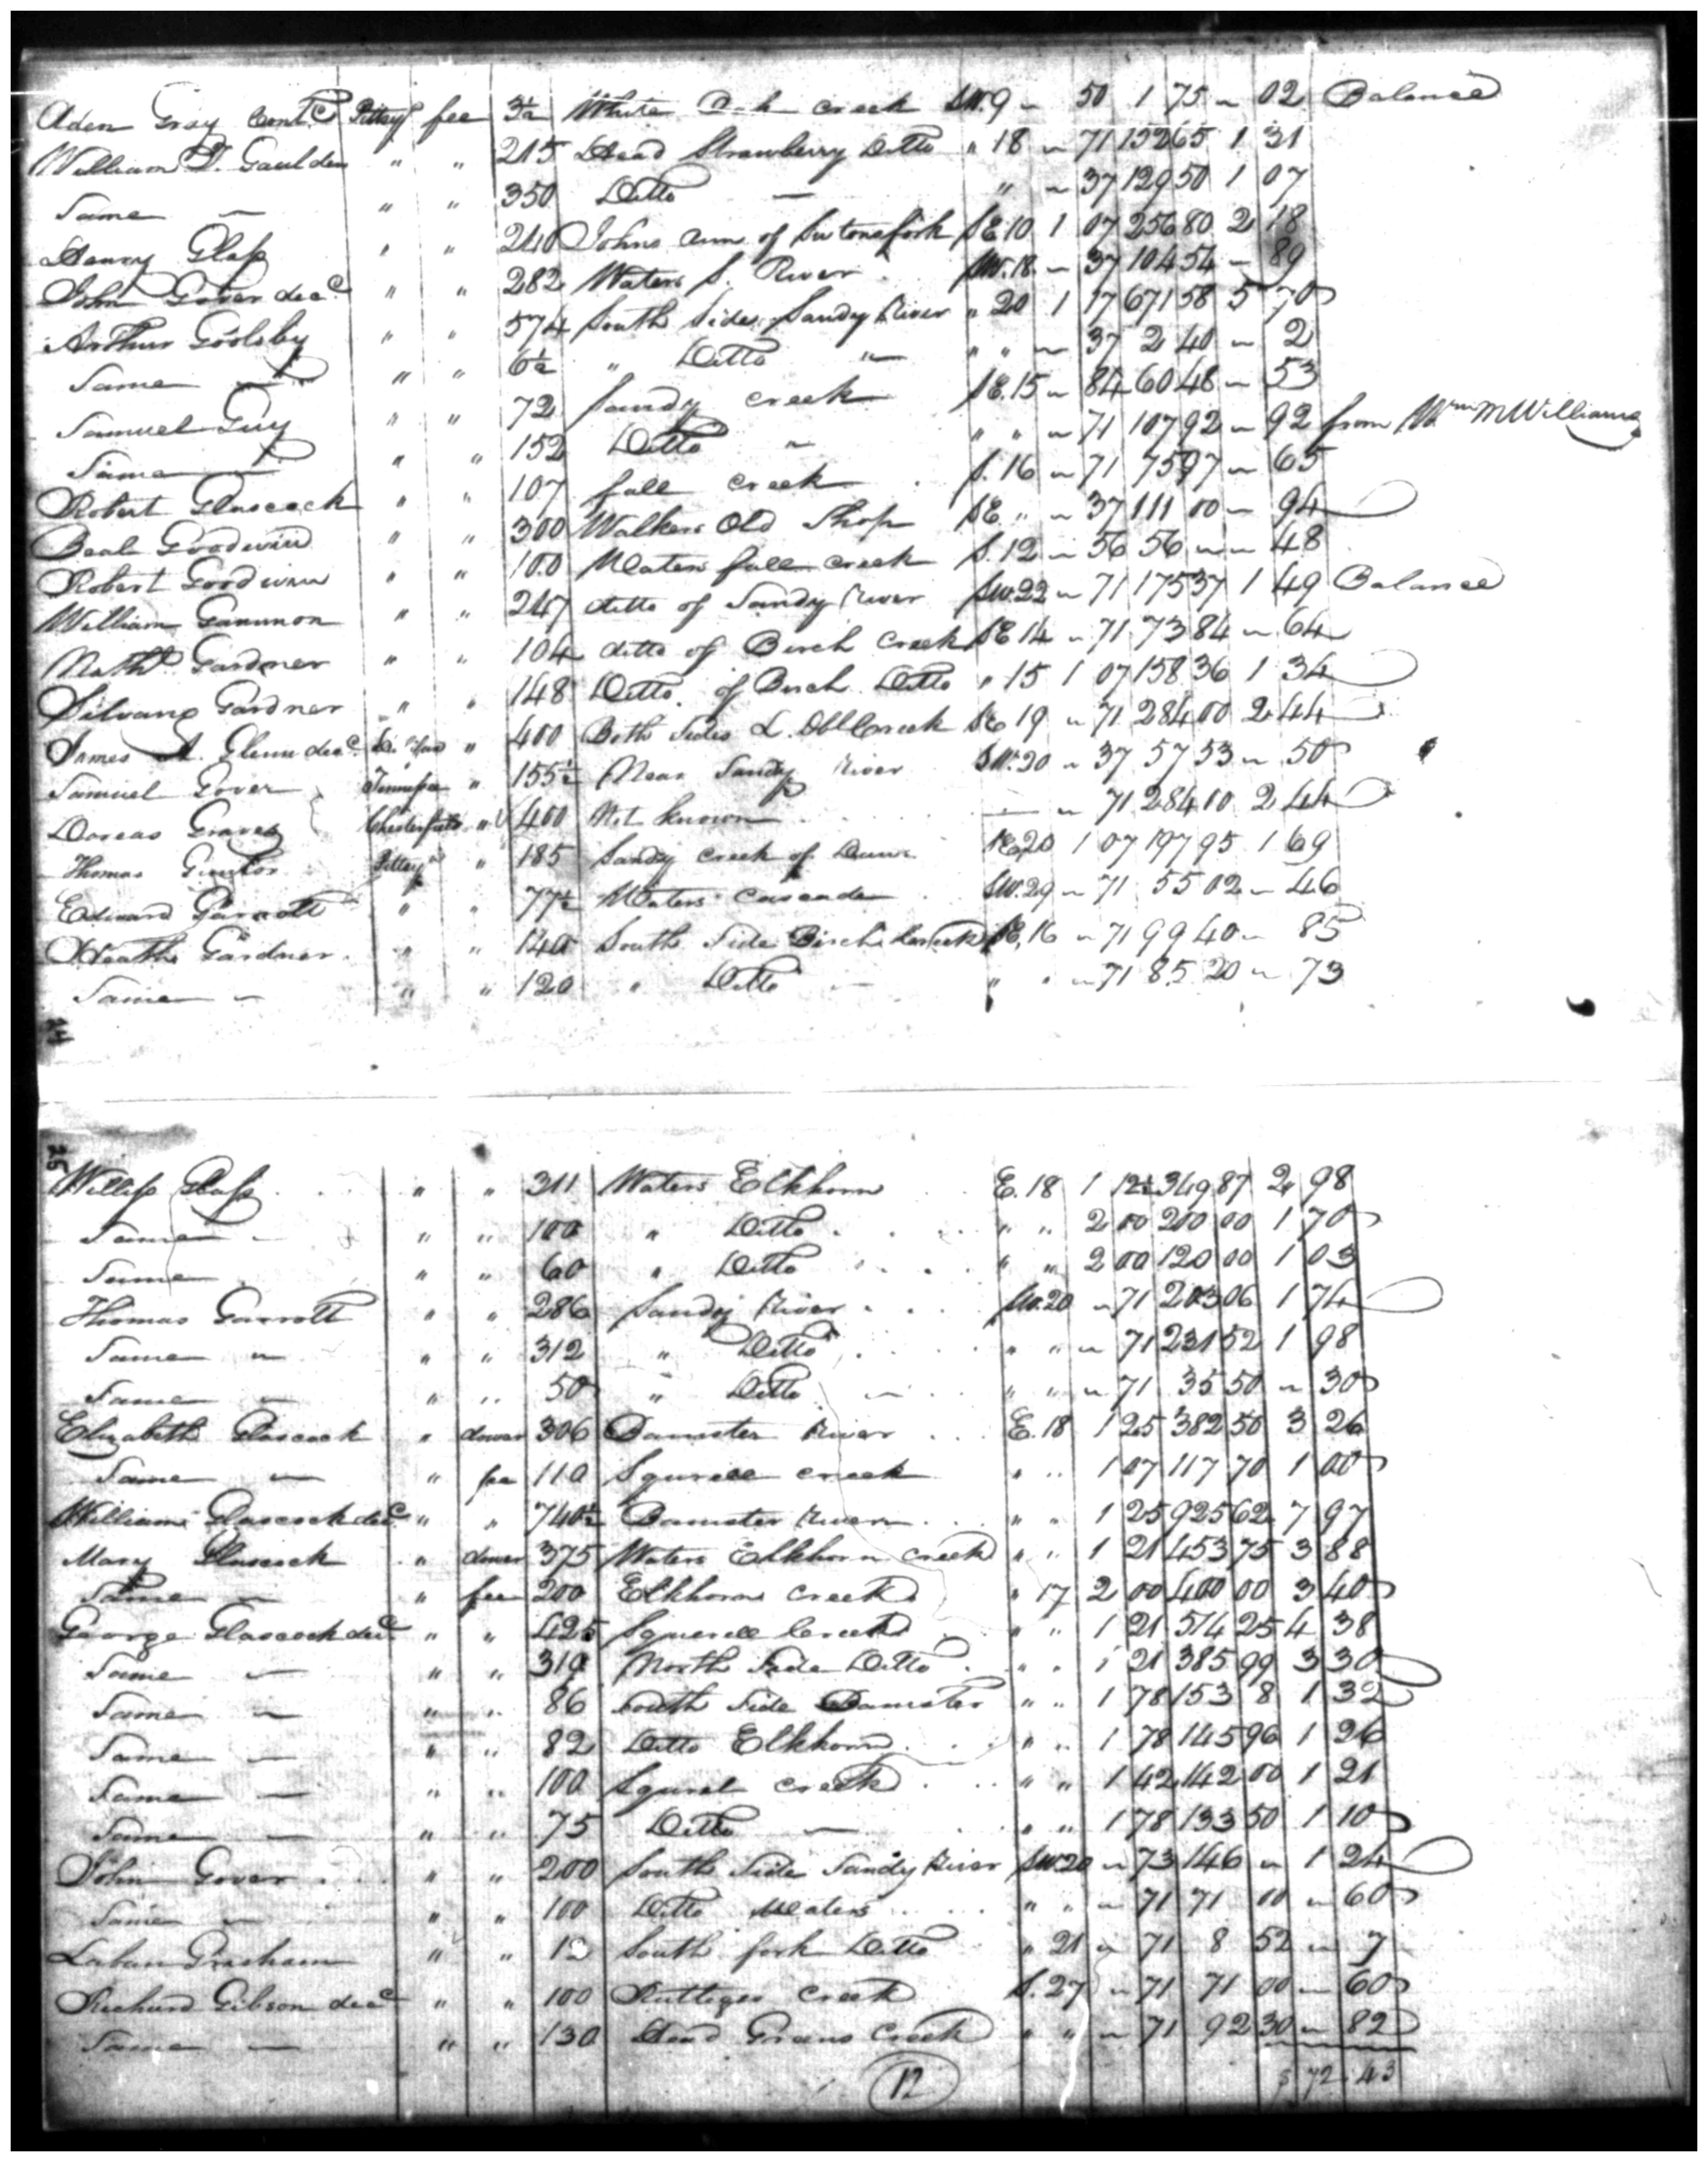 Aden Gray Cont.d Pittsy fee 3½ White Oak creek SW. 9 " 50 1 75 " 02 Balance
William T. Gaulden " " 215 Head Strawberry Ditto " 18 " 71 152 65 1 31
Same " " " 350 Ditto " " " 37 129 50 1 07
Henry Glass " " 240 Johns Arm of Sutons fork SE. 10 1 07 256 80 2 18
John Gover dec.d " " 282 Waters S. River SW. 18 " 37 104 54 " 89
Arthur Goolsby " " 574 South Side Sandy River " 20 1 17 671 58 5 70
Same " " " 6½ " Ditto " " " " 37 2 40 " 2
Samuel Guy " " 72 Sandy creek SE. 15 " 84 60 48 " 53
Same " " 152 Ditto " " " " 71 107 92 " 92 from Wm McWilliams
Robert Glascock " " 107 fall creek S. 16 " 71 75 97 " 65
Beal Goodwin " " 300 Walkers Old Shop SE " " 37 111 00 " 94
Robert Goodwin " " 100 Waters fall creek S. 12 " 56 56 " " 48
William Gammon " " 247 ditto of Sandy River SW. 22 " 71 175 37 1 49 Balance
Nath.l Gardner " " 104 ditto of Birch Creek SE 14 " 71 73 84 " 64
Silvany Gardner " " 148 Ditto of Birch Ditto " 15 1 07 158 36 1 34
James A. Glenn dec.d " 400 Both Sides L. Creek SE 19 " 71 284 00 2 44
Samuel Gover Tennessee " 155½ Near Sandy River SW. 20 " 37 57 53 " 50
Dorcas Graves Chesterfield " 400 Not known — " 71 284 00 2 44
Thomas Gunter Pittsy " 185 Sandy creek of Dann SE 20 1 07 197 95 1 69
Edward Garrott " " 77½ Waters Cascade SW. 29 " 71 55 02 " 46
Heath Gardner " " 140 South Side Birch Creek SE. 16 " 71 99 40 " 85
Same " " " 120 " Ditto " " " 71 85 20 " 73
25
Willis Glass " " 311 Waters Elkhorn E. 18 1 12½ 349 87 2 98
Same " " 100 " Ditto " " 2 00 200 00 1 70
Same " " 60 " Ditto " " 2 00 120 00 1 03
Thomas Garrott " " 286 Sandy River SW. 20 " 71 203 06 1 74
Same " " " 312 " Ditto " " " 71 231 52 1 98
Same " " " 50 " Ditto " " " 71 35 50 " 30
Elizabeth Glascock " dower 306 Banister River E. 18 1 25 382 50 3 26
Same " " fee 110 Squrell creek " " 1 07 117 70 1 00
William Glascock dec.d " " 740½ Banister River " " 1 25 925 62 7 97
Mary Glascock " dower 375 Waters Elkhorn creek " " 1 21 453 75 3 88
Same " " fee 200 Elkhorn creek " 17 2 00 400 00 3 40
George Glascock dec.d " " 425 Squrell Creek " " 1 21 514 25 4 38
Same " " " 319 North Side Ditto " " 1 21 385 99 3 30
Same " " " 86 South Side Banister " " 1 78 153 8 1 32
Same " " " 82 Ditto Elkhorn " " 1 78 145 96 1 26
Same " " " 100 Squrel creek " " 1 42 142 00 1 21
Same " " " 75 Ditto — " " 1 78 133 50 1 10
John Gover " " 200 South Side Sandy River SW. 20 " 73 146 " 1 24
Same " " " 100 Ditto Waters " " " 71 71 00 " 60
Laban Grisham " " 12 South fork Ditto " 21 " 71 8 52 " 7
Richard Gibson dec.d " " 100 creek S. 27 " 71 71 00 " 60
Same " " " 130 Head Greens Creek " " " 71 92 30 " 82
12 $ 72.43